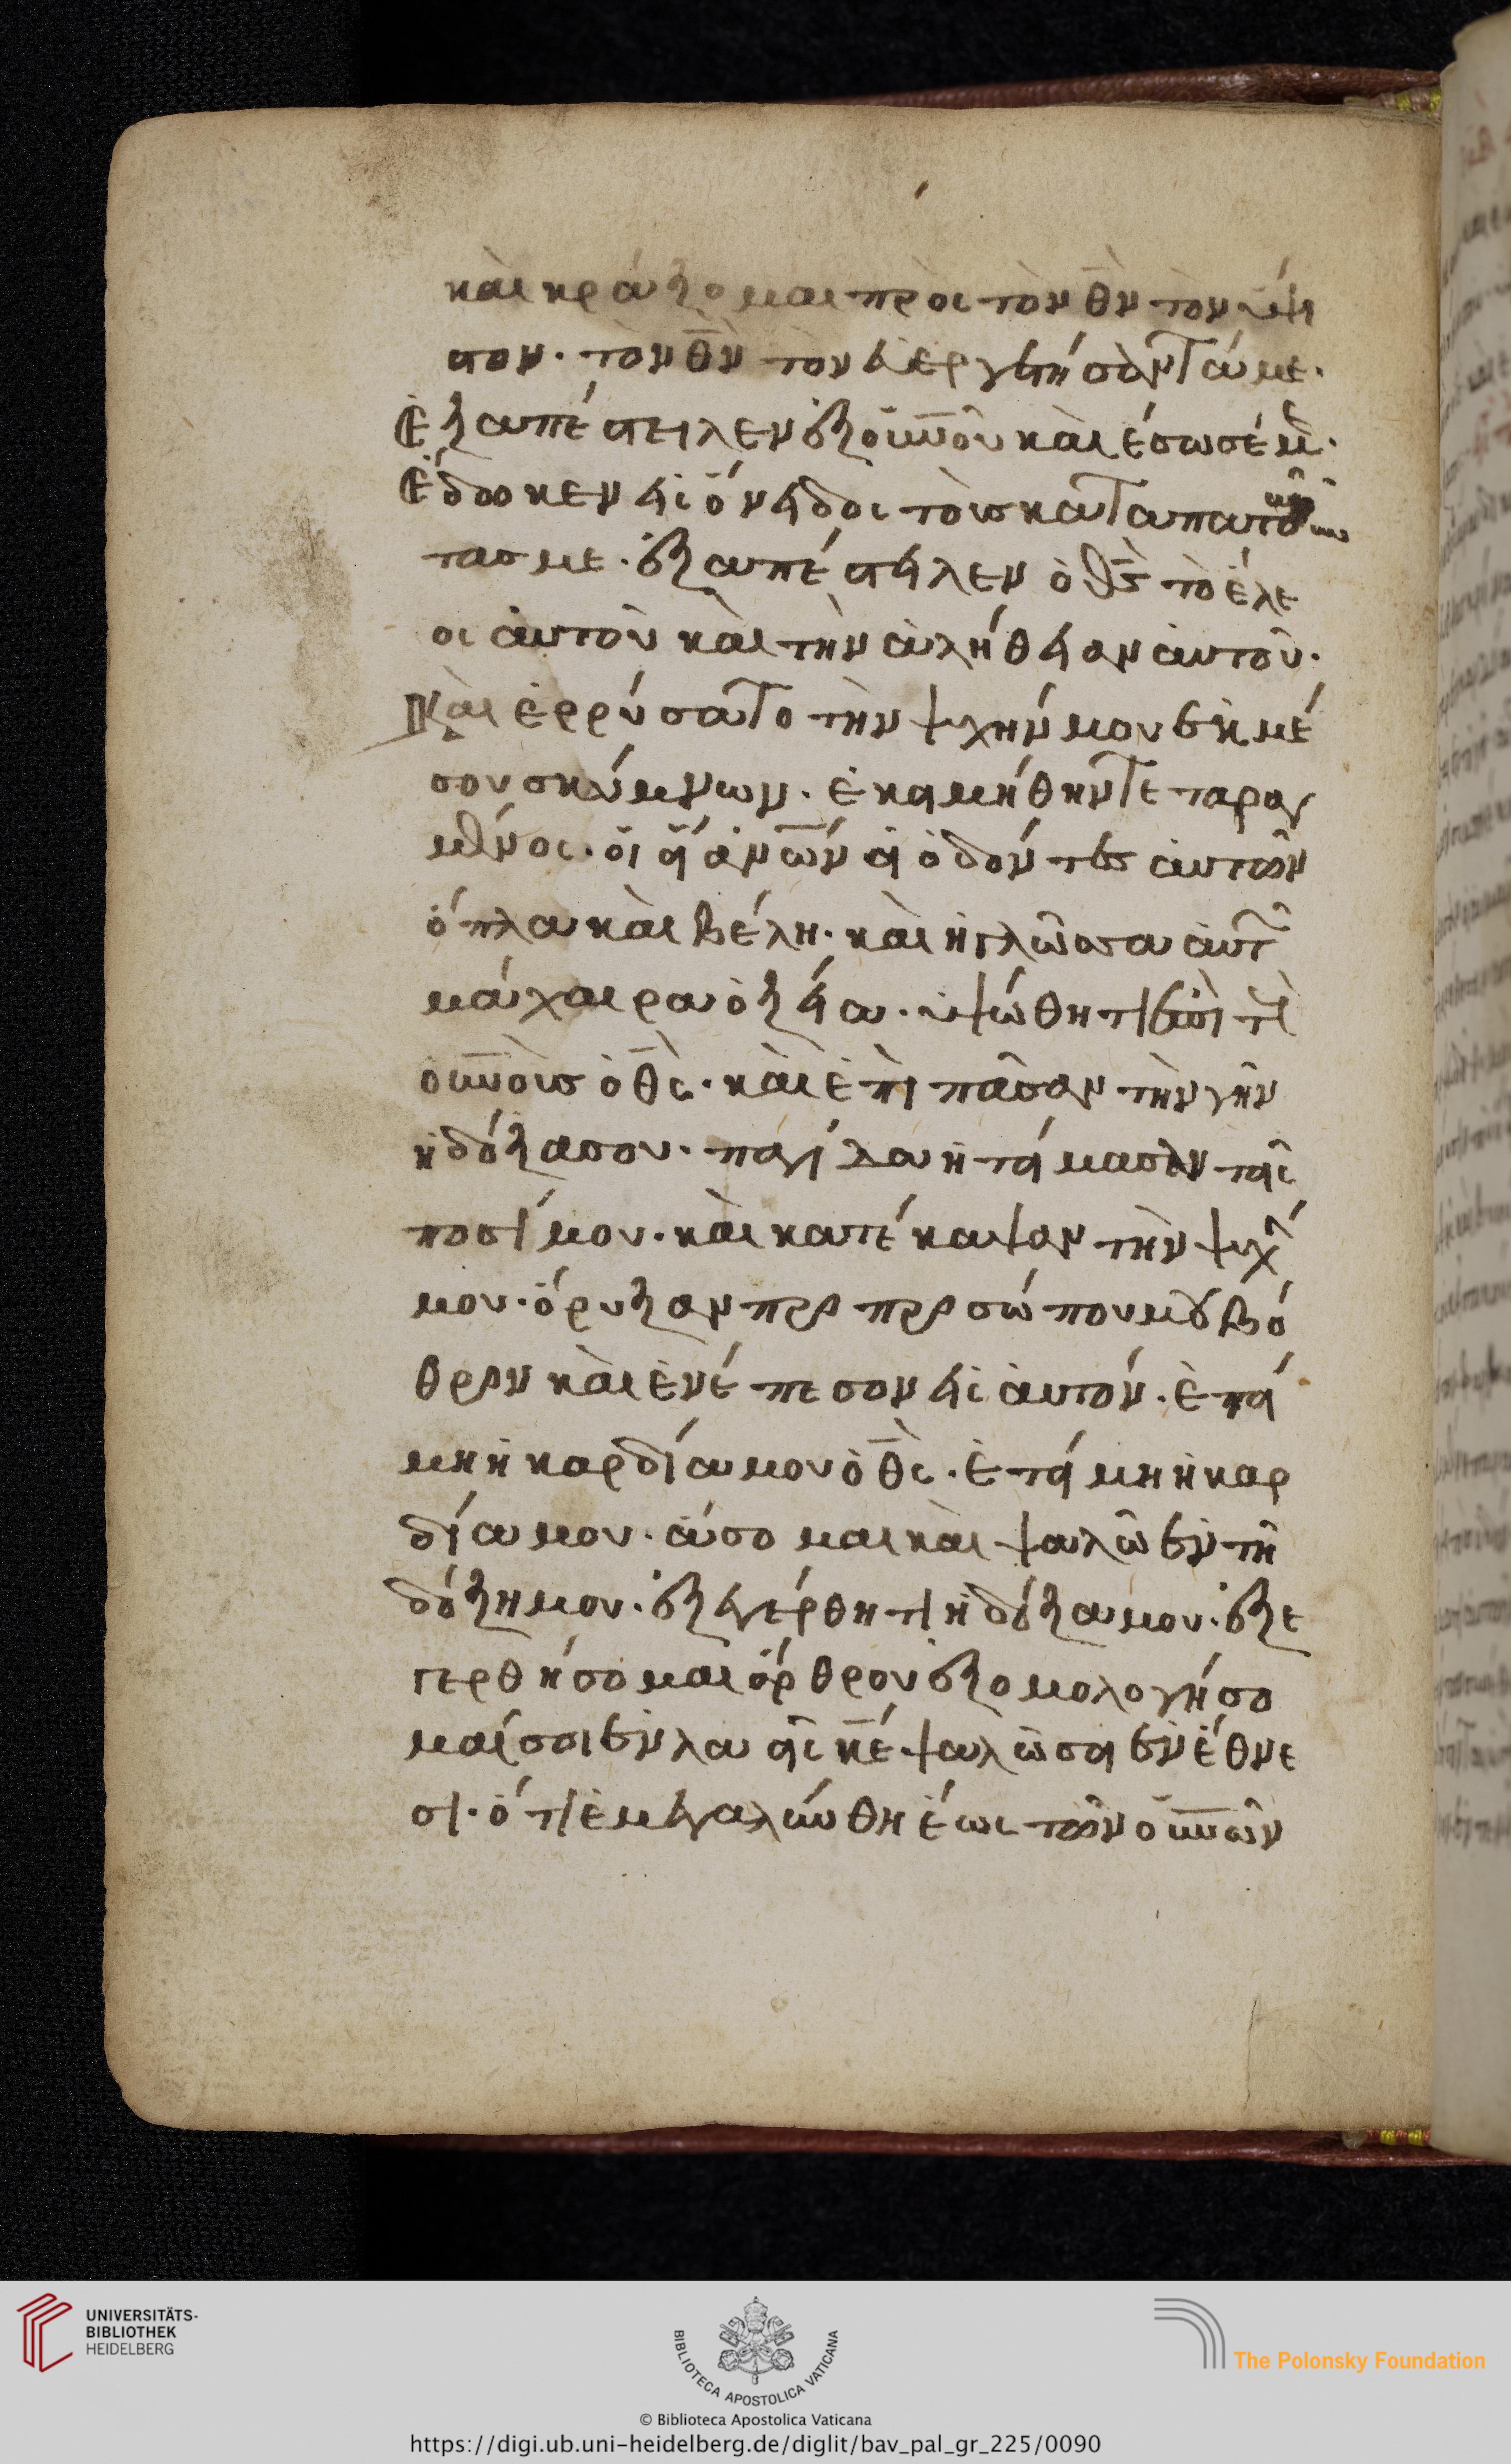 κὰι κράζομαι πρὸς τὸν θ̅ν̅ τὸν ὑψι
στον. τὸν θ̅ν̅ τὸν εὐεργετήσαντά με.
Ἐξαπέστειλεν ἐξ ὀυ̅ν̅οῦ κὰι ἔσωσέ με.
Ἔδοοκεν εἰς ὄνειδος τοὺς καταπατοῦν
τας με. ἐξαπέστειλεν ὁ θ̅ς̅ τὸ ἔλε
ος ἀυτοῦ κὰι τὴν ἀλήθειαν ἀυτοῦ.
Κὰι ἐρρύσατο τὴν ψυχήν μου ἐκ μέ
σου σκύμνων. ἐκοιμήθην τεταραγ
μένος. οἱ υἱοὶ ἀν̅ω̅ν οἱ ὀδόντες ἀυτῶν
ὅπλα κὰι βέλη. κὰι ἡ γλῶσσα ἀυτῶν
μάχαιρα ὀξεῖα. ὑψώθητι ἐπὶ τοὺς
ὀυ̅ν̅οὺς ὁ θ̅ς̅. κὰι ἐπὶ πᾶσαν τὴν γῆν
ἡ δόξα σου. παγίδα ἡτοίμασαν τοῖς
ποσί μου. κὰι κατέκαμψαν τὴν ψυχήν
μου. ὄρυξαν προ προσώπου μου βό
θρον κὰι ἐνέπεσον εἰς ἀυτόν. ἑτοί
μη ἡ καρδία μου ὁ θ̅ς̅. ἑτοίμη ἡ καρ
δία μου. ἄσομαι κὰι ψαλῶ ἐν τῇ
δόξη μου. ἐξεγέρθητι ἡ δόξα μου. ἐξε
γερθήσομαι ὄρθρου ἐξομολογήσο
μαί σοι ἐν λαοῖς κ̅ε̅. ψαλῶ σοι ἐν ἔθνε
σι. ὅτι ἐμεγαλύνθη ἕως τῶν ὀυ̅ν̅ῶν
UNIVERSITÄTS-
BIBLIOTHEK
HEIDELBERG
BIBLIOTECA APOSTOLICA VATICANA
The Polonsky Foundation
© Biblioteca Apostolica Vaticana
https://digi.ub.uni-heidelberg.de/diglit/bav_pal_gr_225/0090